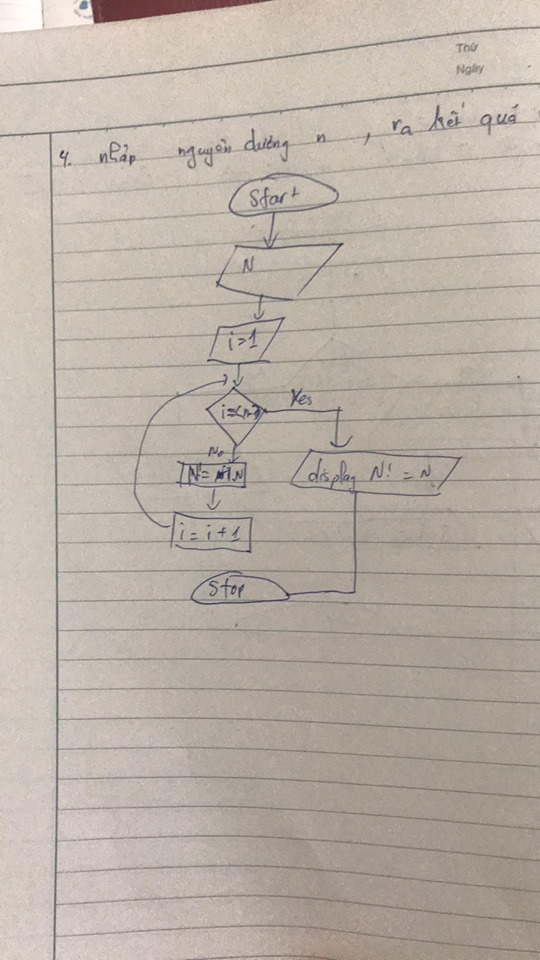 Thứ
Ngày
4. nhập nguyên dương n , ra kết quả
Start
N
i>1
Yes
No
display N! = N
i = i + 1
Stop